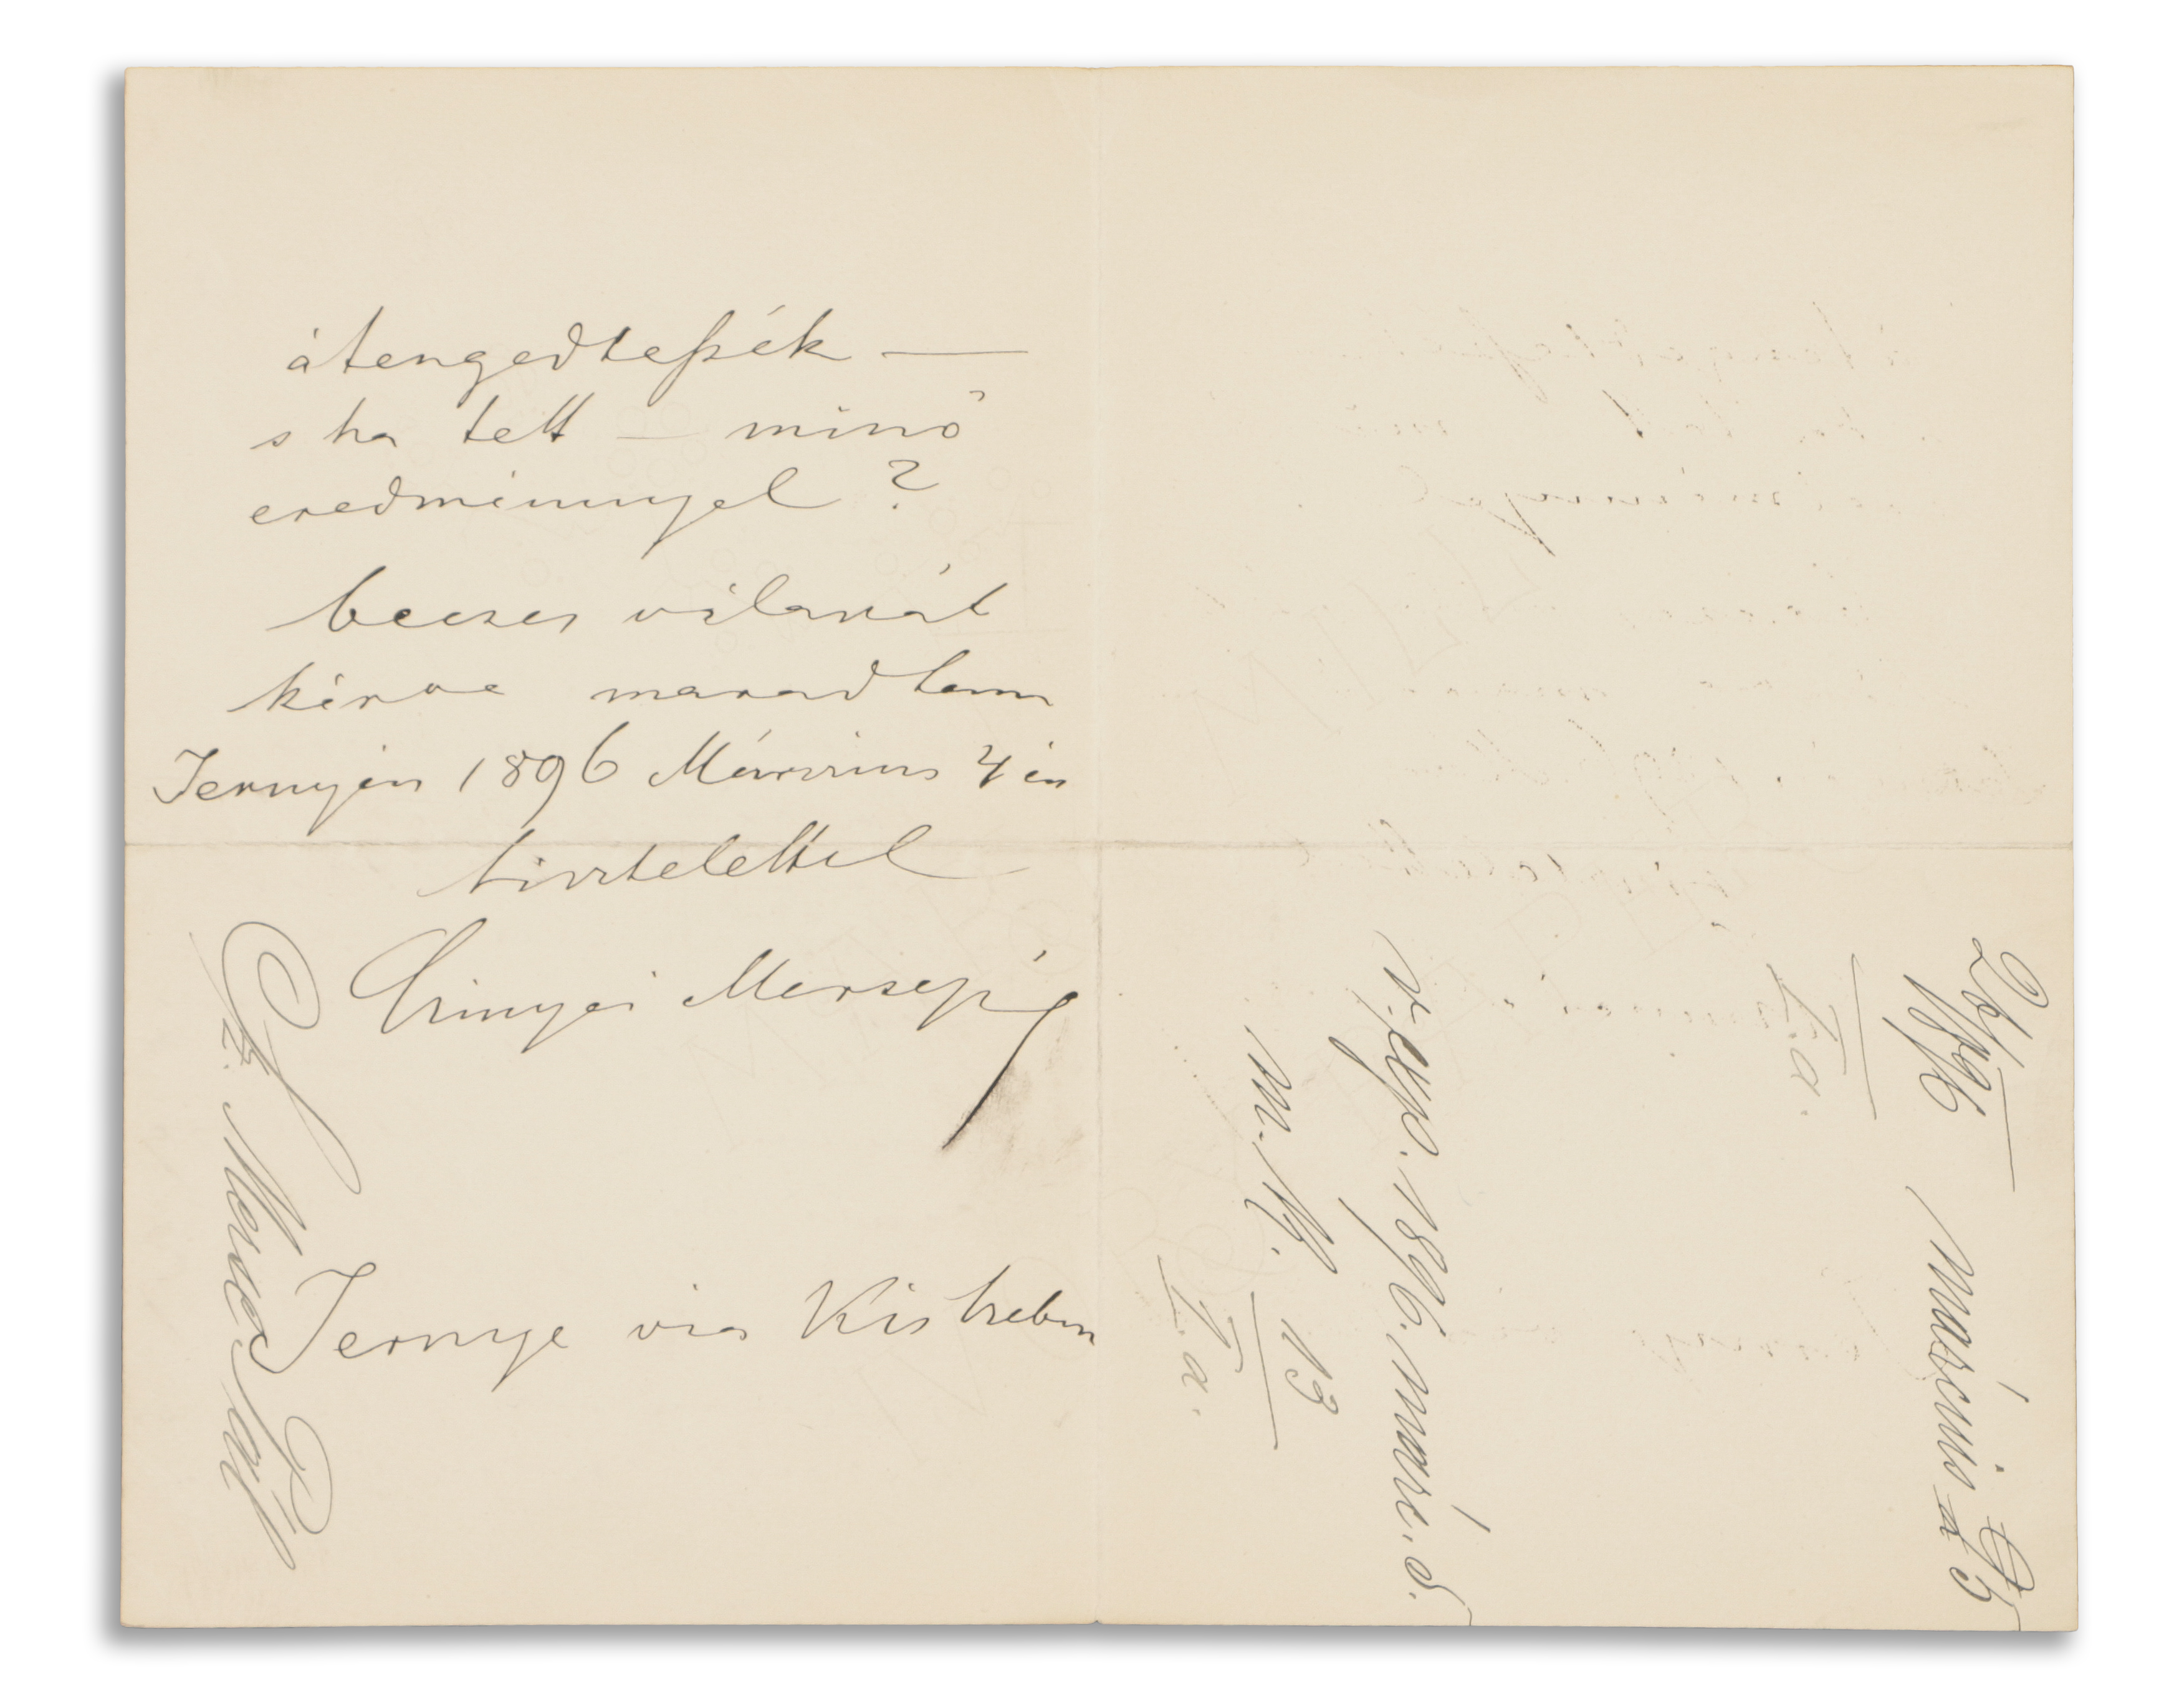 átengedtessék —
s ha tett — minő
eredménnyel?
becses válaszát
kérve maradtam
Jernyén 1896 Márczius 4én
tisztelettel
Szinyei Merse Pál
Jernye via Kis Szeben
Sz. Merse Pál
1896
márczius 5
1896. márc. 5.
13